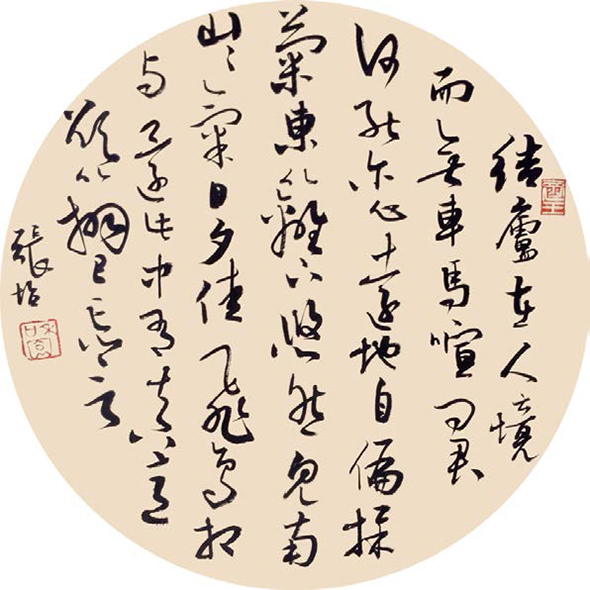 結廬在人境
而無車馬喧問君
何能尔心遠地自偏採
菊東籬下悠然見南
山々氣日夕佳飛鳥相
与還此中有真意
欲辨已忘言
張